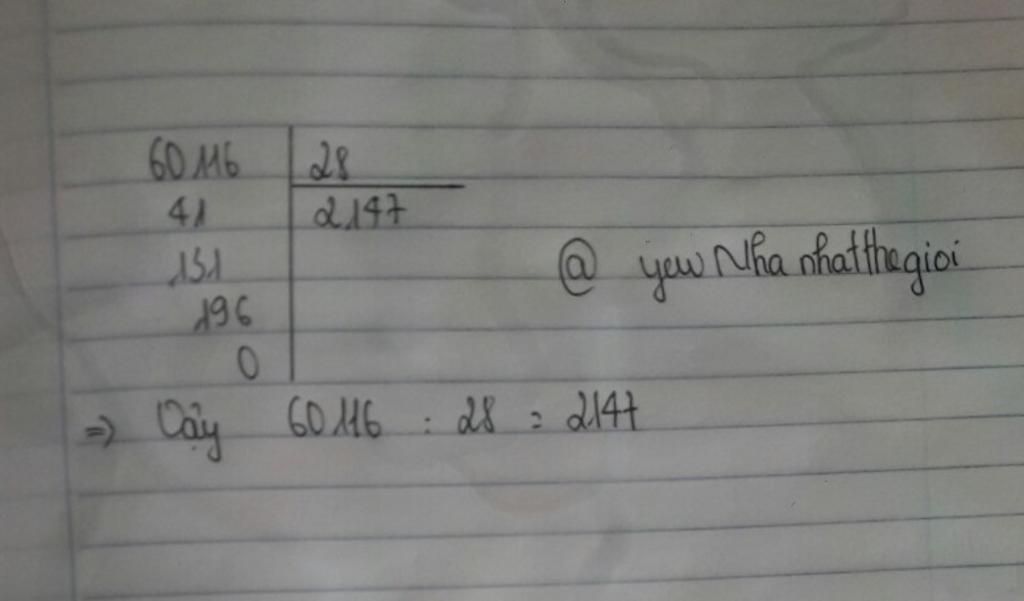 60116 28
41 2147
131
196
0
@ yewNhanhatthegioi
=> Vậy 60116 : 28 = 2147